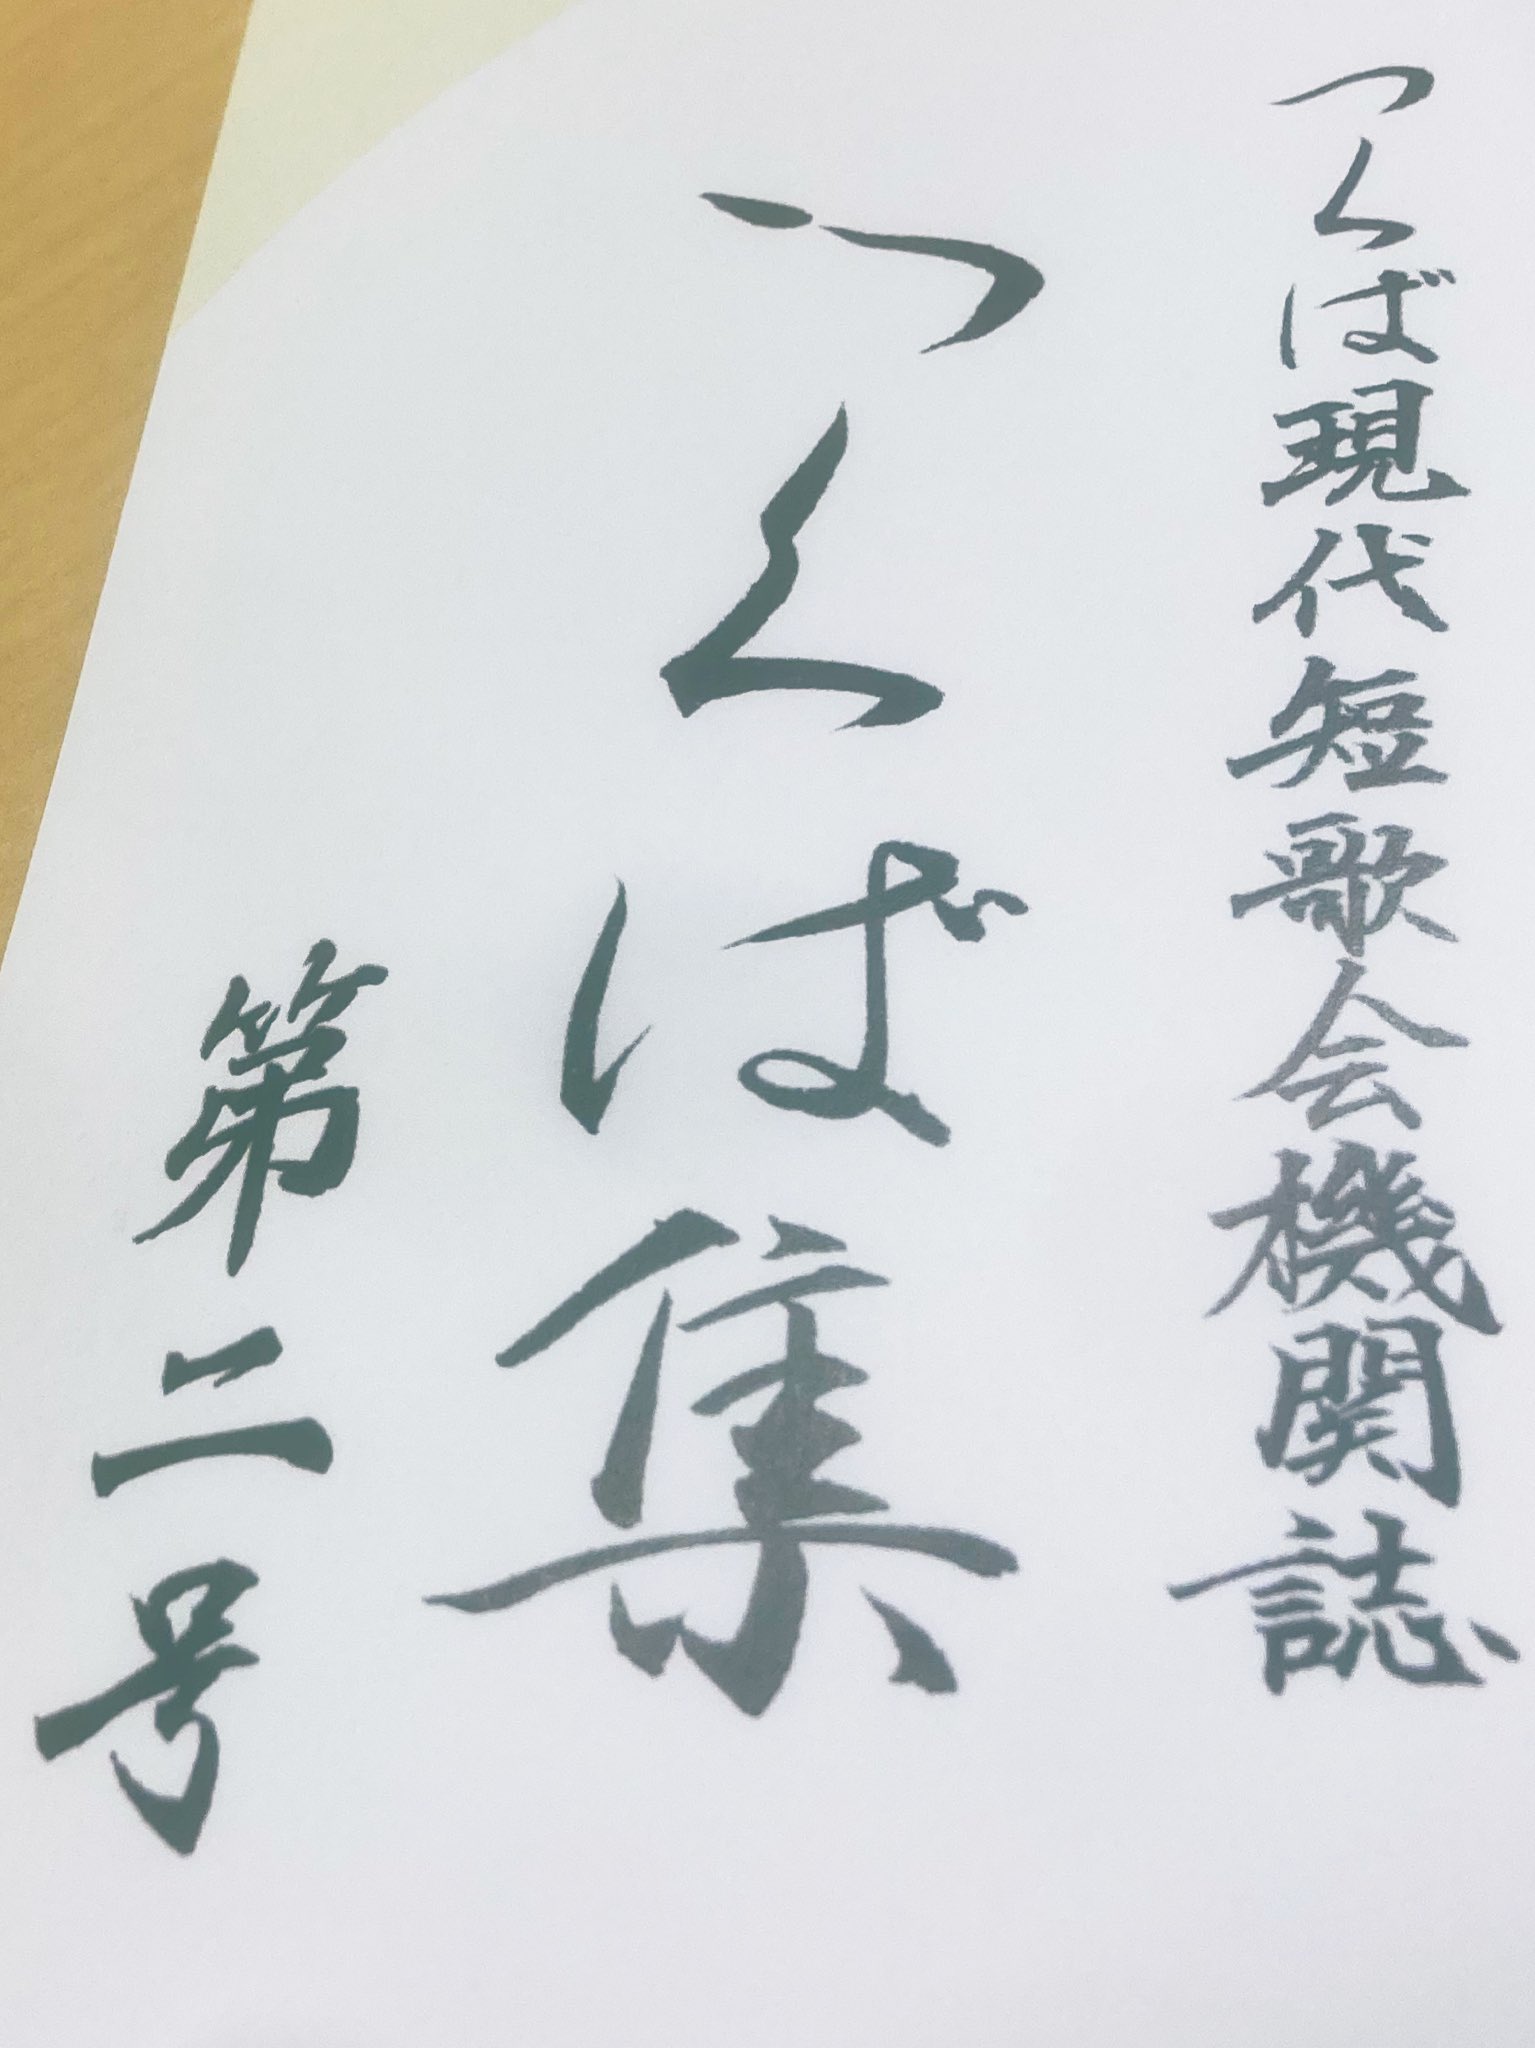 つくば現代短歌会機関誌
つくば集
第二号